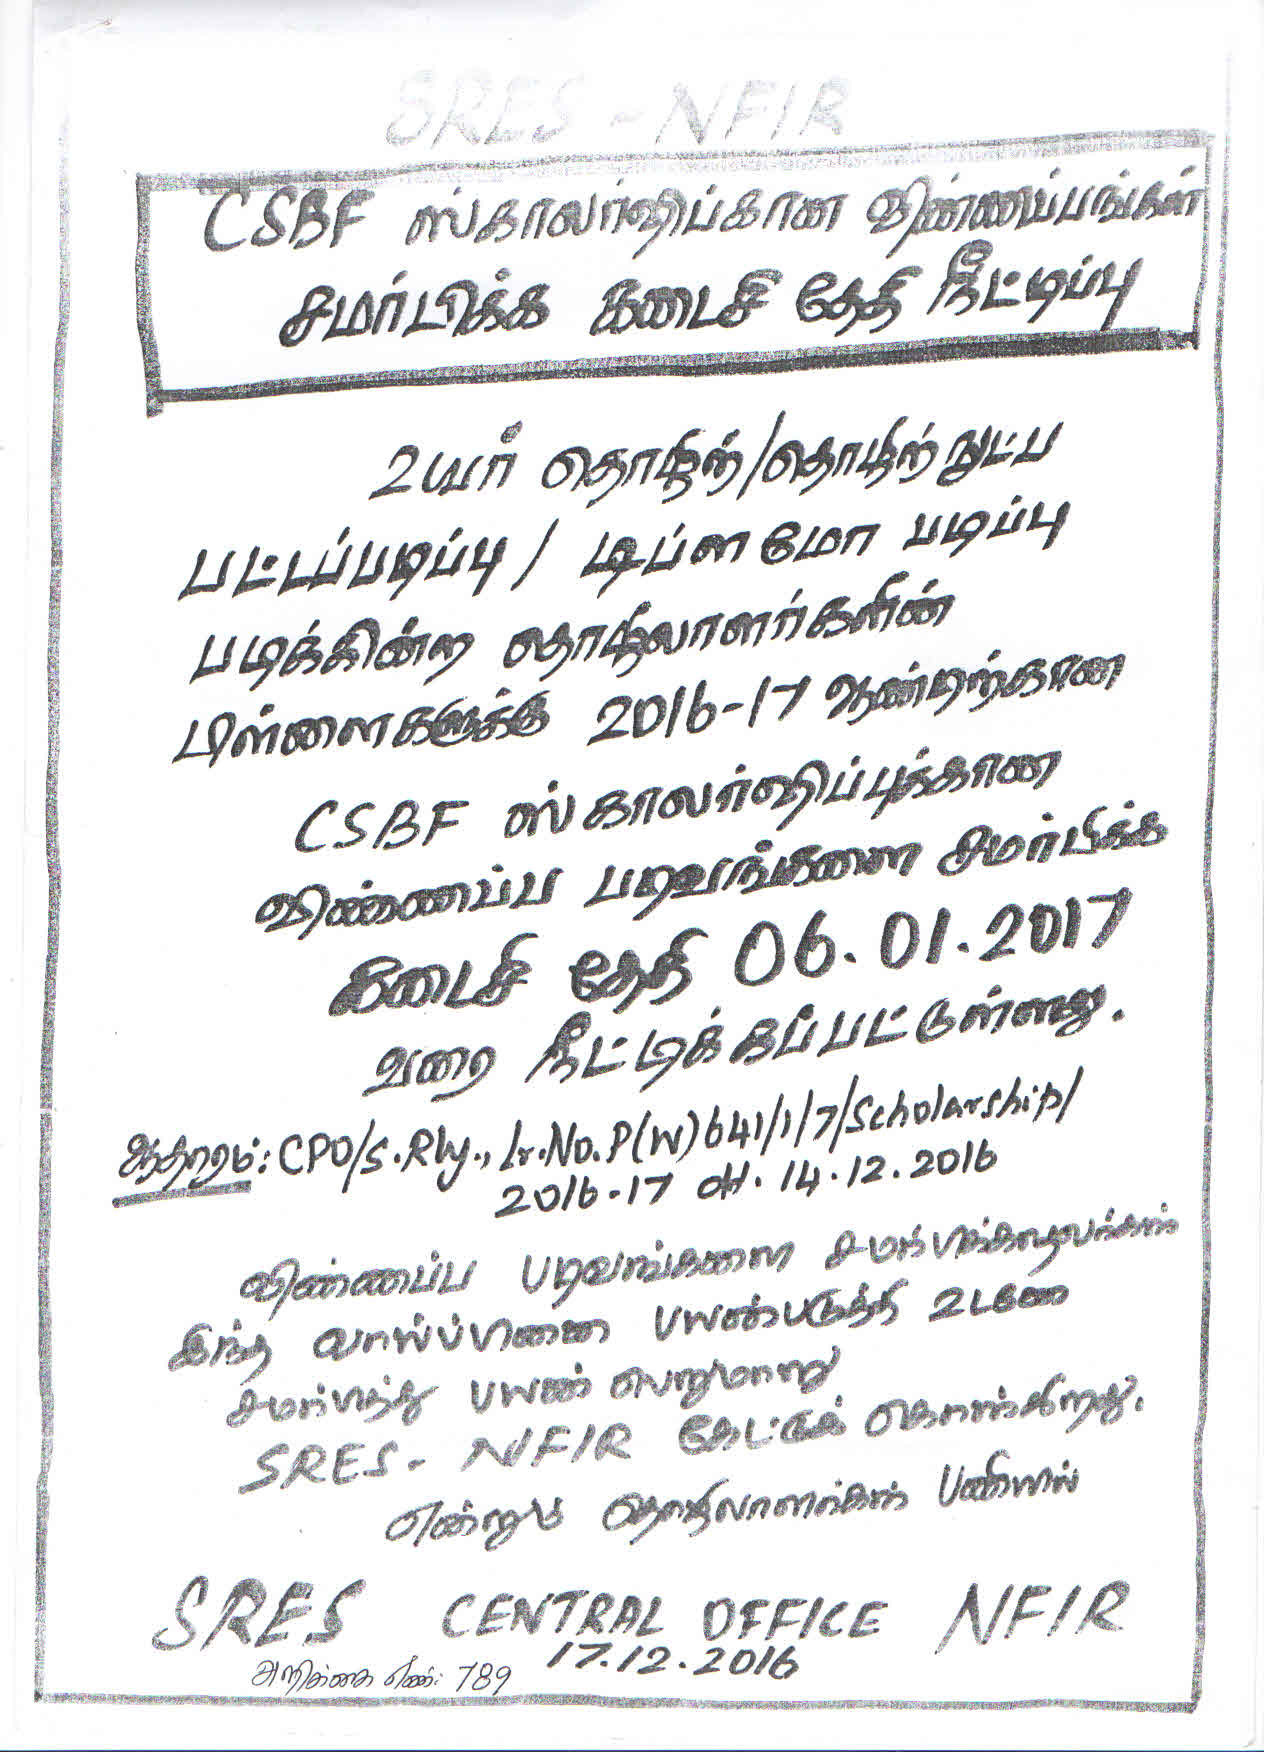 SRES - NFIR
CSBF ஸ்காலர்ஷிப்கான விண்ணப்பங்கள்
சமர்பிக்க கடைசி தேதி நீட்டிப்பு
உயர் தொழிற்/தொழிற் நுட்ப
பட்டப்படிப்பு / டிப்ளமோ படிப்பு
படிக்கின்ற தொழிலாளர்களின்
பிள்ளைகளுக்கு 2016-17 ஆண்டிற்கான
CSBF ஸ்காலர்ஷிப்புக்கான
விண்ணப்ப படிவங்களை சமர்பிக்க
கடைசி தேதி 06.01.2017
வரை நீட்டிக்கப்பட்டுள்ளது.
ஆதாரம்: CPO/S.Rly., Lr.No.P(W)641/1/7/Scholarship/
2016-17 dt. 14.12.2016
விண்ணப்ப படிவங்களை சமர்பிக்காதவர்கள்
இந்த வாய்ப்பினை பயன்படுத்தி உடனே
சமர்பித்து பயன் பெறுமாறு
SRES- NFIR கேட்டுக் கொள்கிறது.
என்றும் தொழிலாளர்கள் பணியில்
SRES CENTRAL OFFICE NFIR
17.12.2016
அறிக்கை எண்: 789